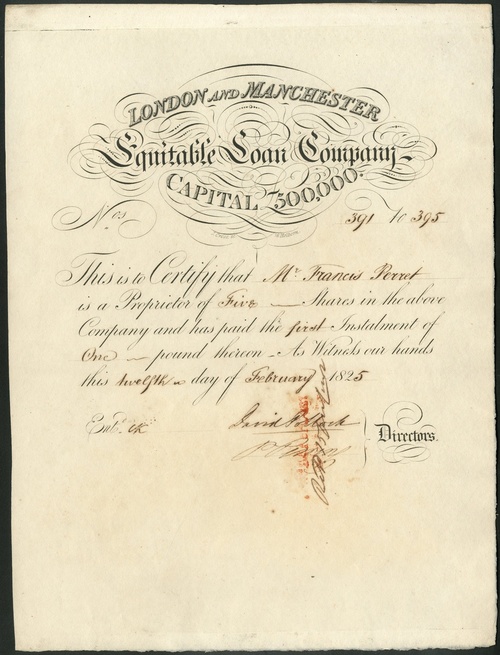 LONDON AND MANCHESTER
Equitable Loan Company
CAPITAL £500,000.
Nos 391 To 395
This is to Certify that Mr. Francis Perret
is a Proprietor of Five Shares in the above
Company and has paid the first Instalment of
One pound thereon – As Witness our hands
this twelfth day of February 1825
Entd.
David Pollock
Directors.